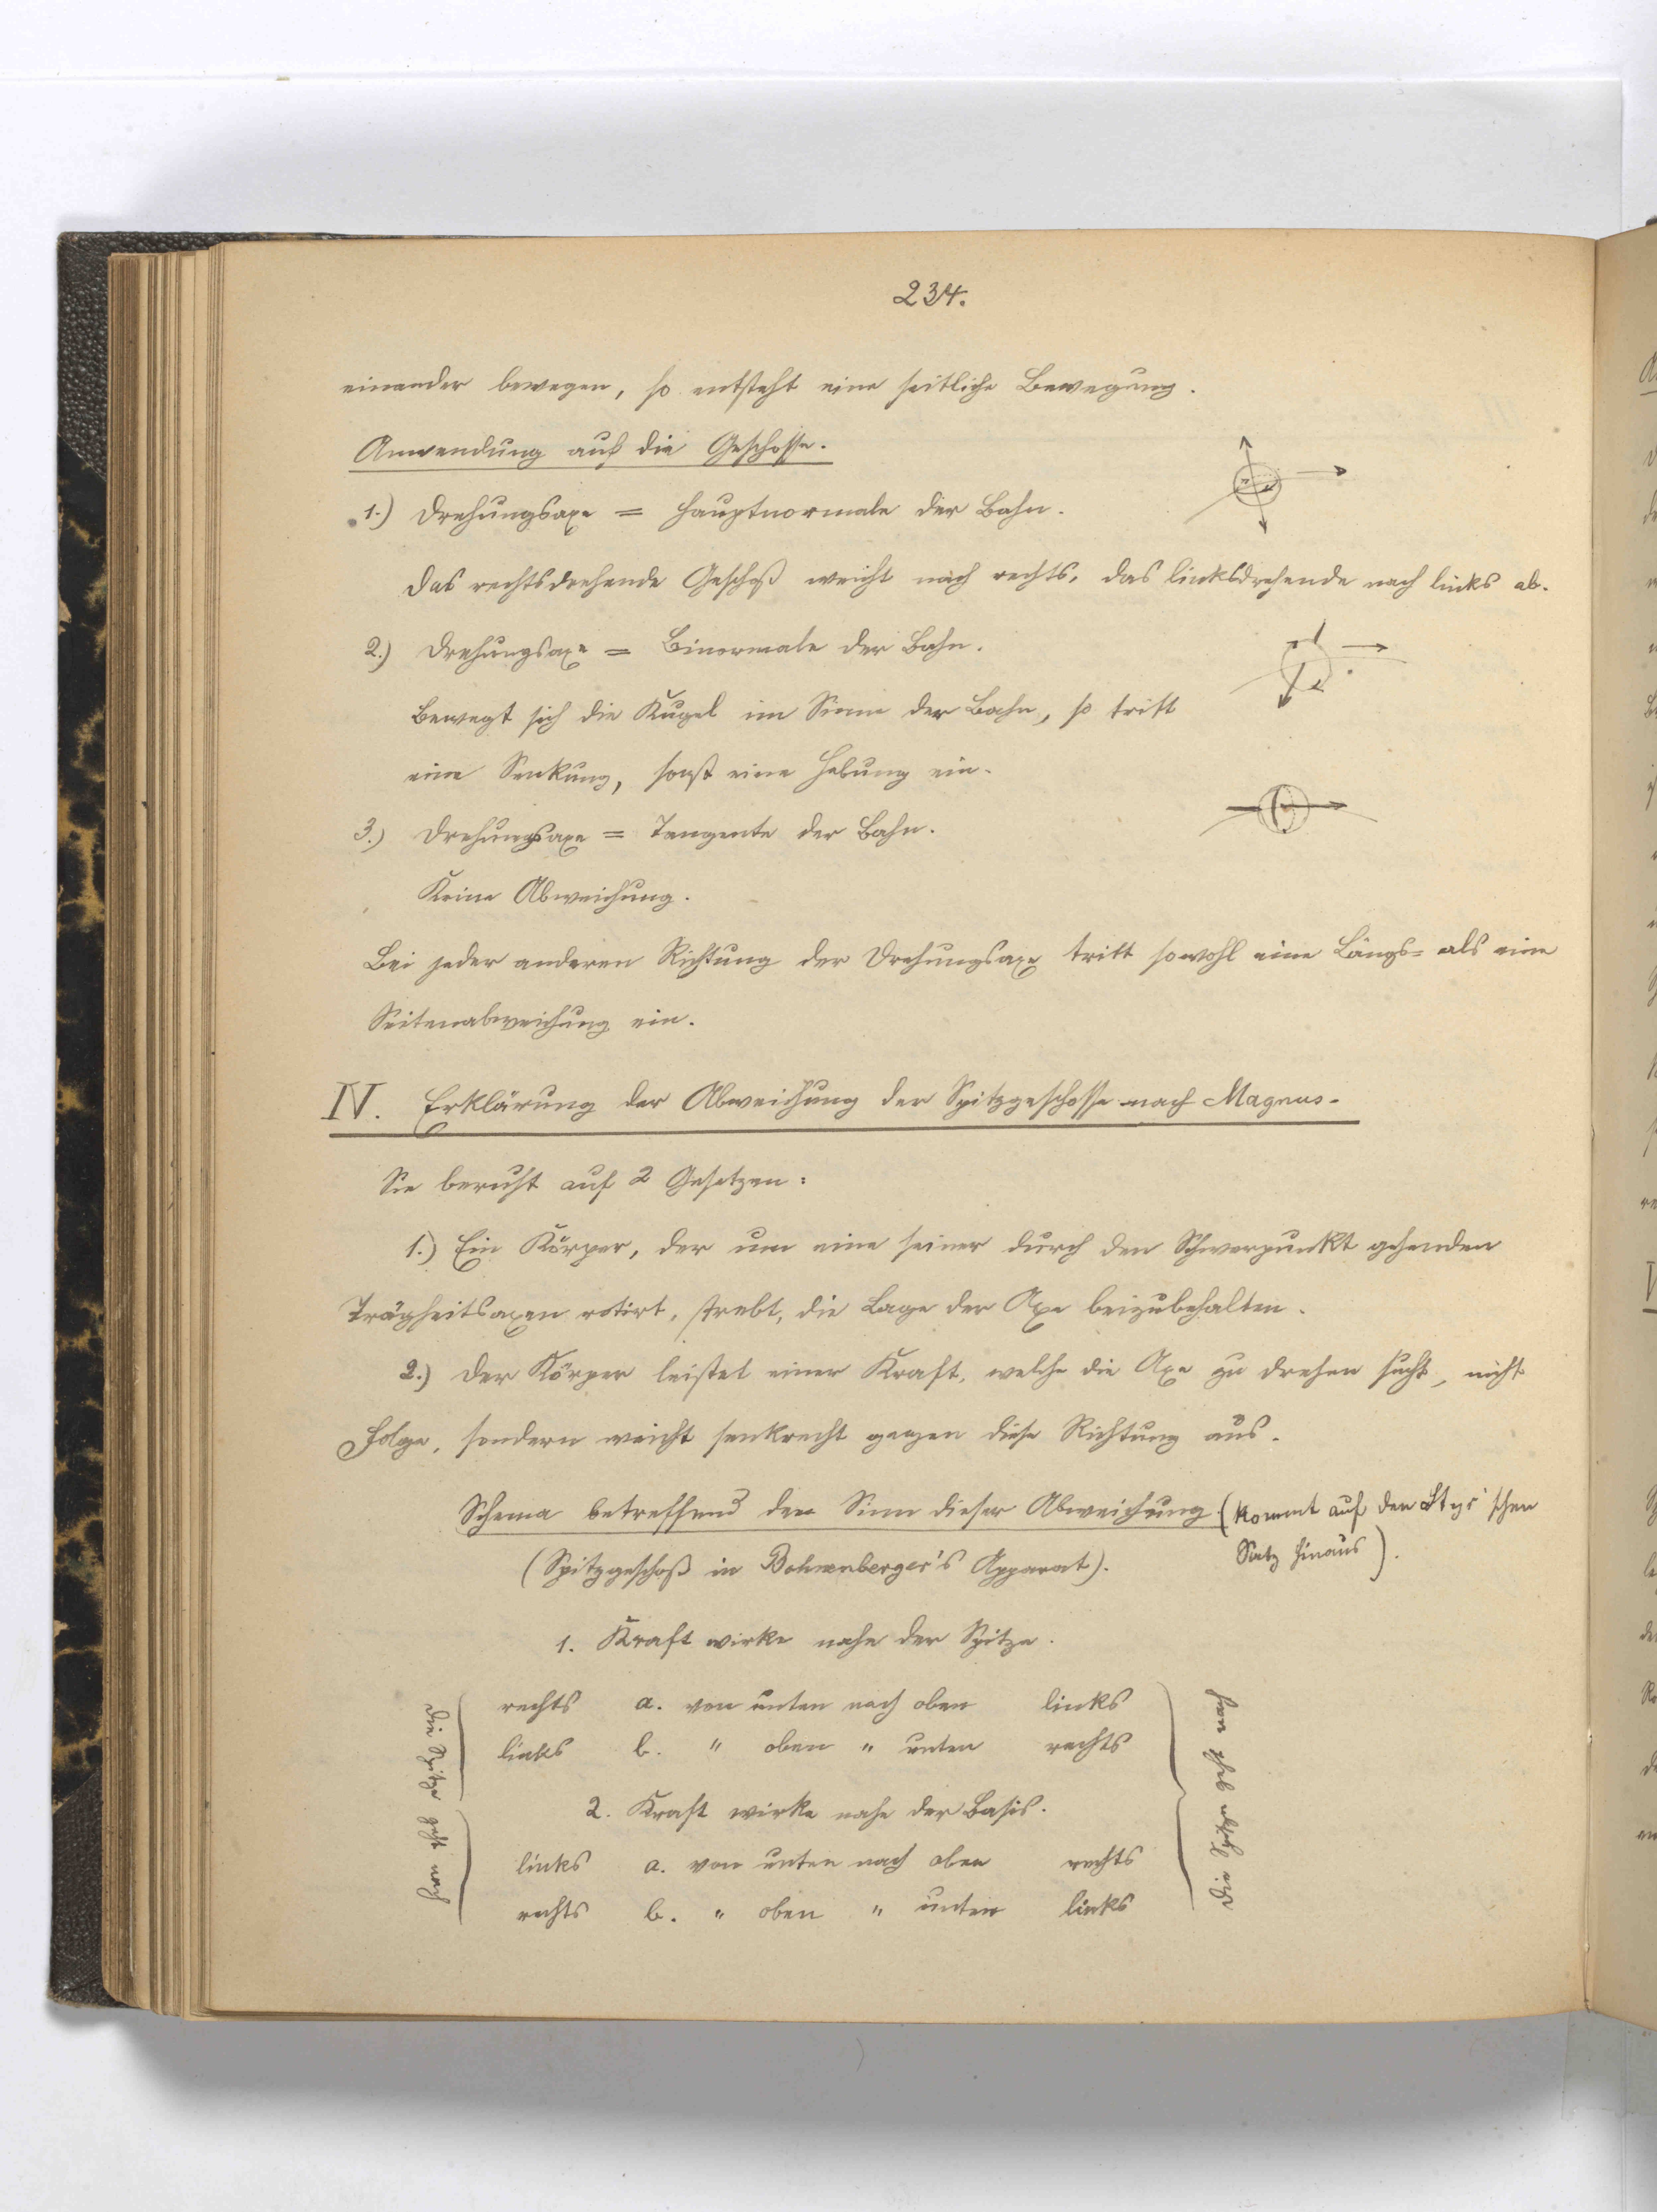 234.
einander bewegen, so entsteht eine seitliche Bewegung.
Anwendung auf die Geschosse.
1.) Drehungsaxe = Hauptnormale der Bahn.
Das rechtsdrehende Geschoß weicht nach rechts, das linksdrehende nach links ab.
2.) Drehungsaxe = Binormale der Bahn.
Bewegt sich die Kugel im Sinne der Bahn, so tritt
eine Senkung, sonst eine Hebung ein.
3.) Drehungsaxe = Tangente der Bahn.
Keine Abweichung.
Bei jeder anderen Richtung der Drehungsaxe tritt sowohl eine Längs= als eine
Seitenabweichung ein.
IV. Erklärung der Abweichung der Spitzgeschosse nach Magnus.
Sie beruht auf 2 Gesetzen:
1.) Ein Körper, der um eine seiner durch den Schwerpunkt gehenden
Trägheitsaxen rotirt, strebt, die Lage der Axe beizubehalten.
2.) Der Körper leistet einer Kraft, welche die Axe zu drehen sucht, nicht
Folge, sondern weicht senkrecht gegen diese Richtung aus.
Schema betreffend den Sinn dieser Abweichung (kommt auf den schen
Satz hinaus).
(Spitzgeschoß in Bohnenberger's Apparat).
1. Kraft wirke nahe der Spitze.
rechts a. von unten nach oben links
links b. " oben " unten rechts
2. Kraft wirke nahe der Basis.
links a. von unten nach oben rechts
rechts b. " oben " unten links
die Spitze geht nach
die Spitze geht nach